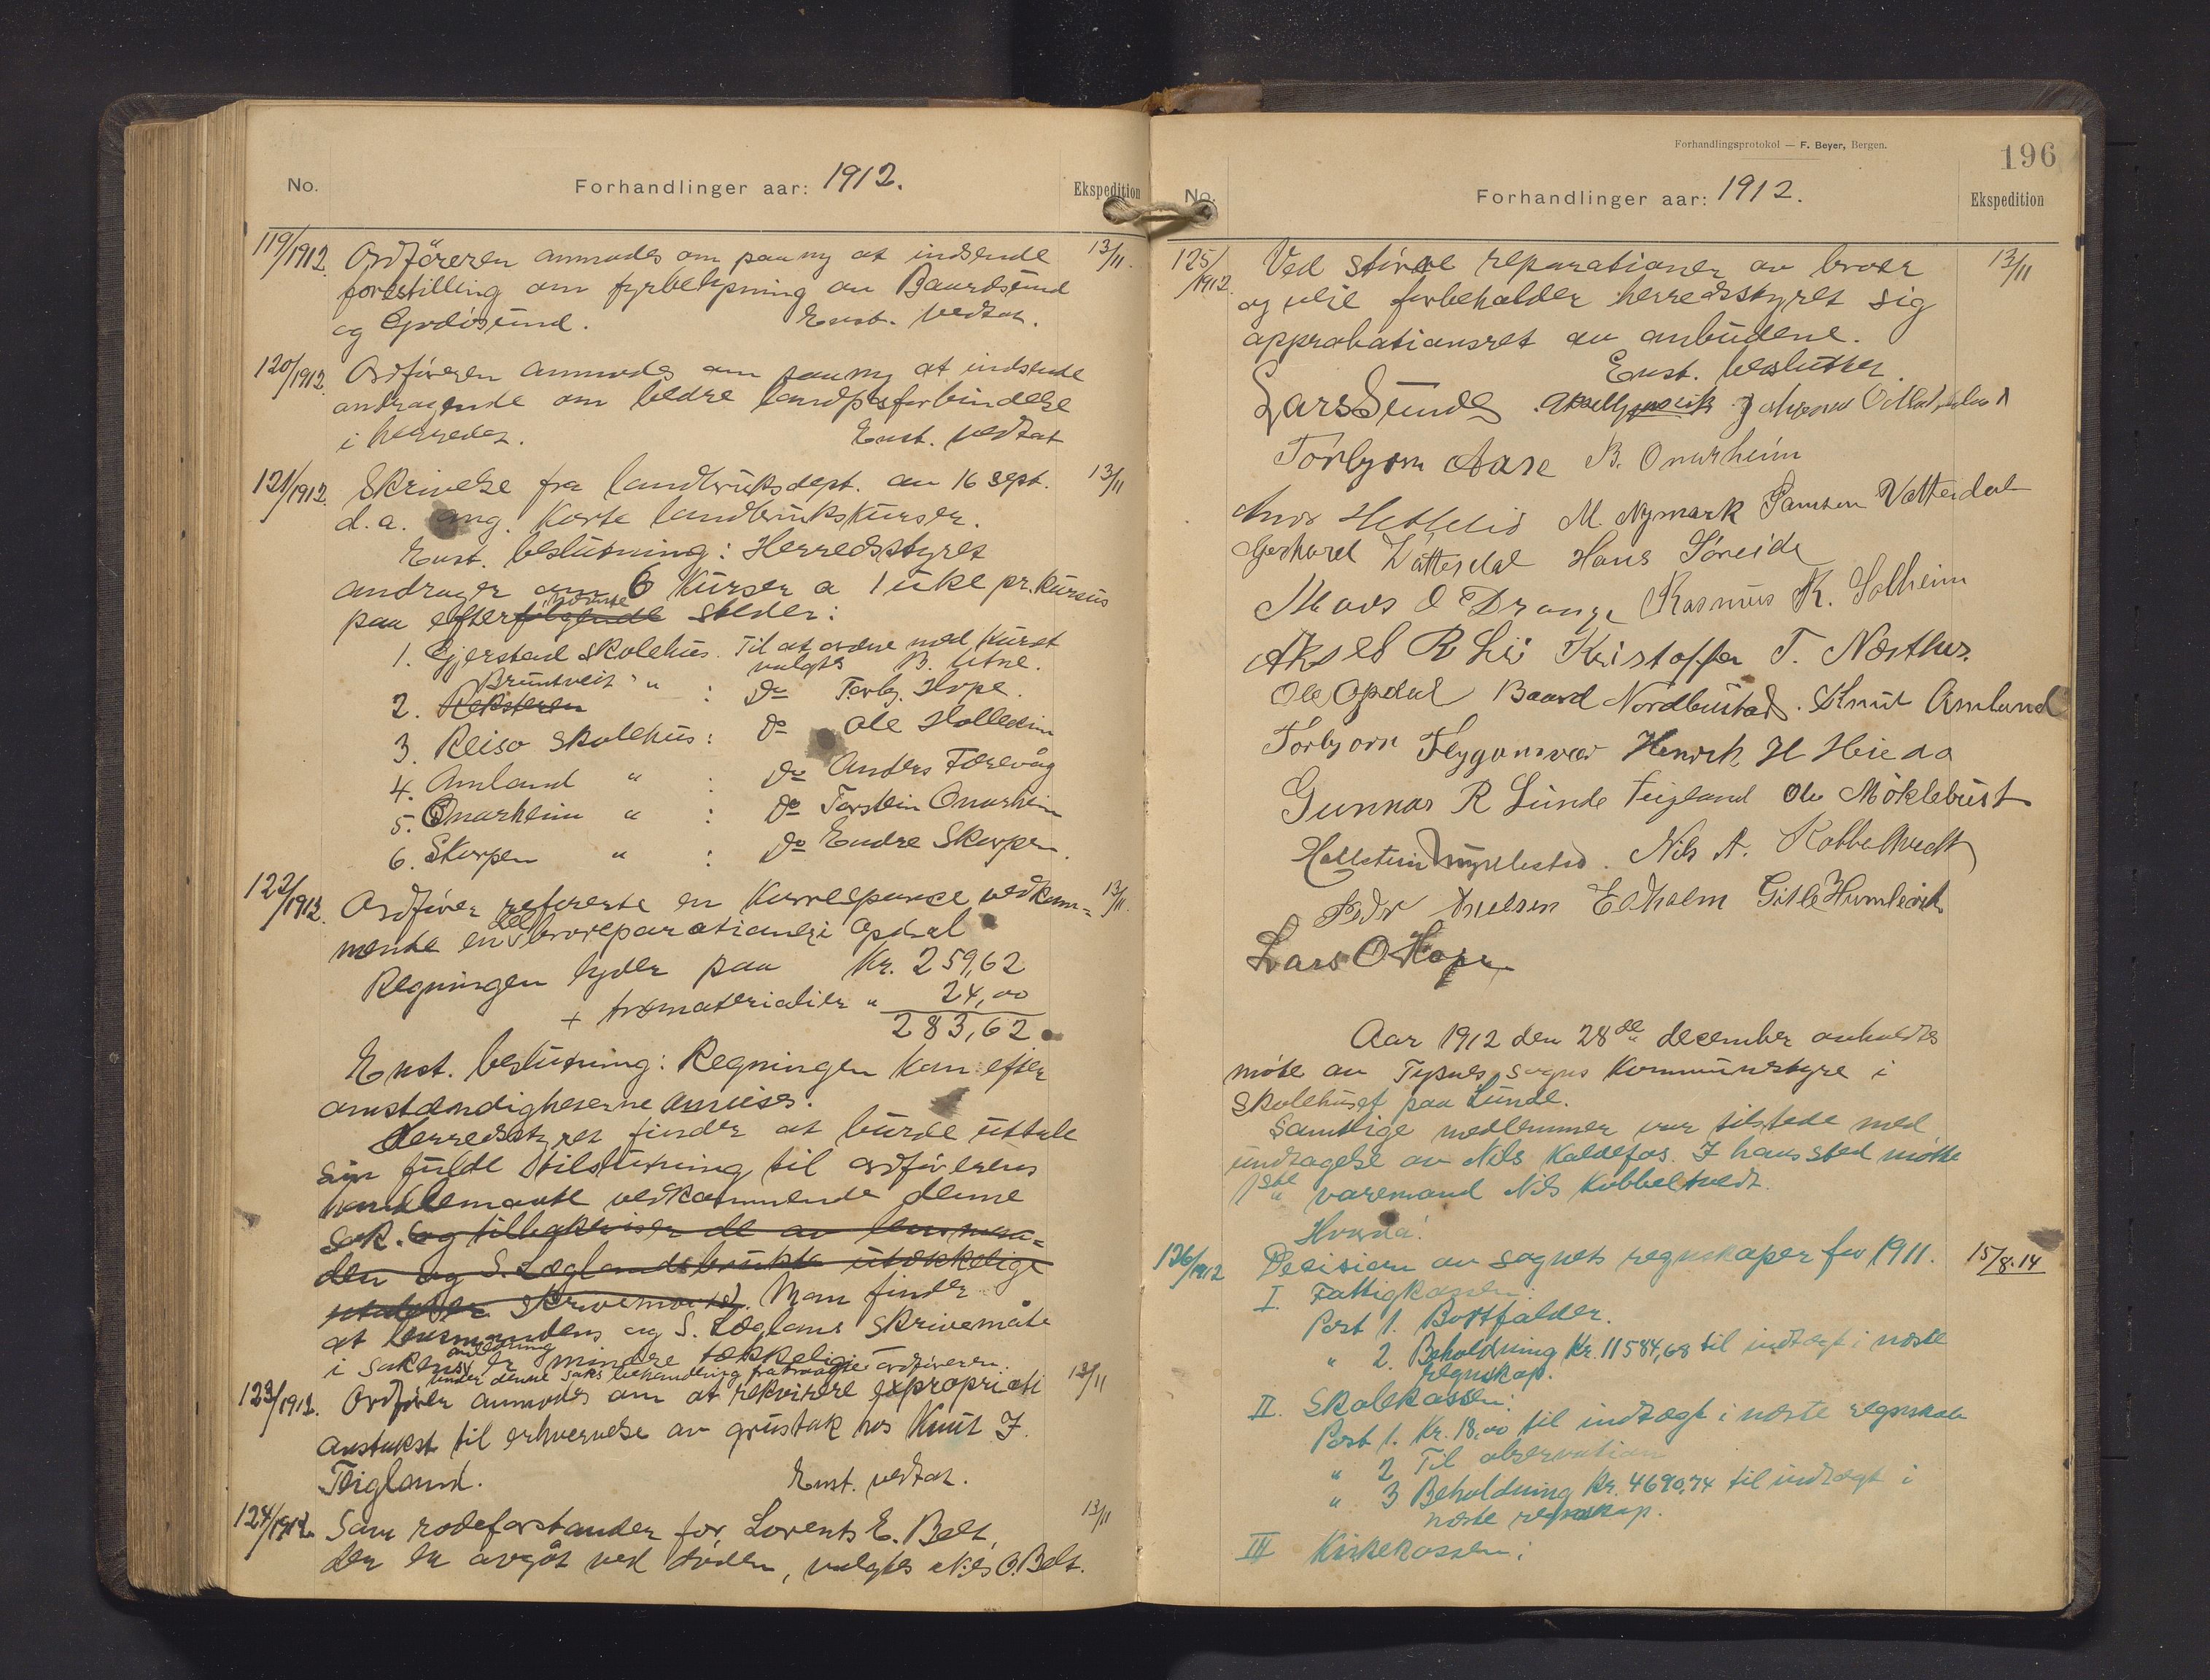 No.
Forhandlinger aar: 1912.
Ekspedition
119/1912. Ordföreren anmodes om paany at indsende 13/11.
forestilling om fyrbelysning av Baardsund
og Godösund. Enst. vedtat.
120/1912. Ordföreren anmodes om paany at indsende
andragende om bedre landpostforbindelse
i herredet. Enst. vedtat
121/1912. Skrivelse fra landbruksdept. av 16 sept. 13/11
d.a. ang. korte landbrukskurser.
Enst. beslutning: Herredsstyret
andrager om 6 kurser a 1 uke pr. kursus
paa efterfølgende steder:
1. Gjerstad skolehus. Til at ordne med kurset
valgtes B. Utne.
Bruntveit " : do Torbj. Hope.
2. Reksteren
3. Reiso skolehus: do Ole Holledün
4. Amland " : do Anders Færevåg
5. Onarheim " : do Torstein Onarheim
6. Skorpen " : do Endre Skorpen.
122/1912. Ordförer refererte en korrespance vedkom= 13/11.
mende en del broreparationer i Opdal
Regningen lyder paa Kr. 259,62
+ træmaterialier " 24,00
283,62
Enst. beslutning: Regningen kan efter
omstændigheterne anvises.
Herredsstyret finder at burde uttale
sin fulde tilslutning til ordförerens
vedkommende denne
sak. og tilbakeviser de av lensman=
den og S. Løglands brukte utækkelige
skrivemaate. Man finder
at lensmandens og S. Løglans skrivemåte
i sakens anledning er mindre tækkelig
under denne saks behandling fratraadte ordföreren.
123/1912. Ordförer anmodes om at rekvirere expropriati 13/11
onstakst til erhvervelse av grustak hos Knut J.
Teigland. Enst. vedtat.
124/1912. Som rodeforstander for Lorents E. Belt, 13/11
der er avgåt ved döden, valgtes Nils O. Belt.
Forhandlingsprotokol — F. Beyer, Bergen.
196
No.
Forhandlinger aar: 1912.
Ekspedition
125/1912. Ved större reparationer av broer 13/11
og veie forbeholder herredsstyret sig
approbationsret av anbudene.
Enst. besluttet.
Lars Sunde
Torbjørn Aase B. Onarheim
M. Nymark Samson Vatterdal
Gerhard Vatterdal Hans Söreide
Mons O Drange Rasmus R. Solheim
Aksel R Lie Kristoffer T. Næsthus.
Ole Opdal Baard Nordbustad. Knut Amland
Torbjørn Flygansvær Henrik H Heie
Gunnar R Lunde Teigland Ole Möklebust
Hallstein Myklestad. Nils A. Kobbeltvedt
Peder Knelsen Edholm Gitle Humlevik
Lars O Hope
Aar 1912 den 28de december avholdtes
möte av Tysnes sogns kommunestyre i
skolehuset paa Lunde.
Samtlige medlemmer var tilstede med
undtagelse av Nils Kaldefos. I hans sted mötte
1ste varemand Nils Kobbeltvedt.
Hvorda:
126/1912 Decision av sognets regnskaper for 1911. 15/8.14
I. Fattigkassen:
Post 1. Bortfalder.
" 2. Beholdning Kr. 11584,68 til indtægt i næste
regnskap.
II. Skolekassen:
Post 1. Kr. 18,00 til indtægt i næste regnskab
" 2 Til observation
" 3 Beholdning Kr. 4690,74 til indtægt i
næste regnskap.
III Kirkekassen: